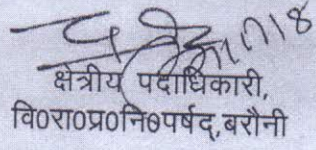 क्षेत्रीय पदाधिकारी,
वि०रा०प्र०नि०पर्षद,बरौनी